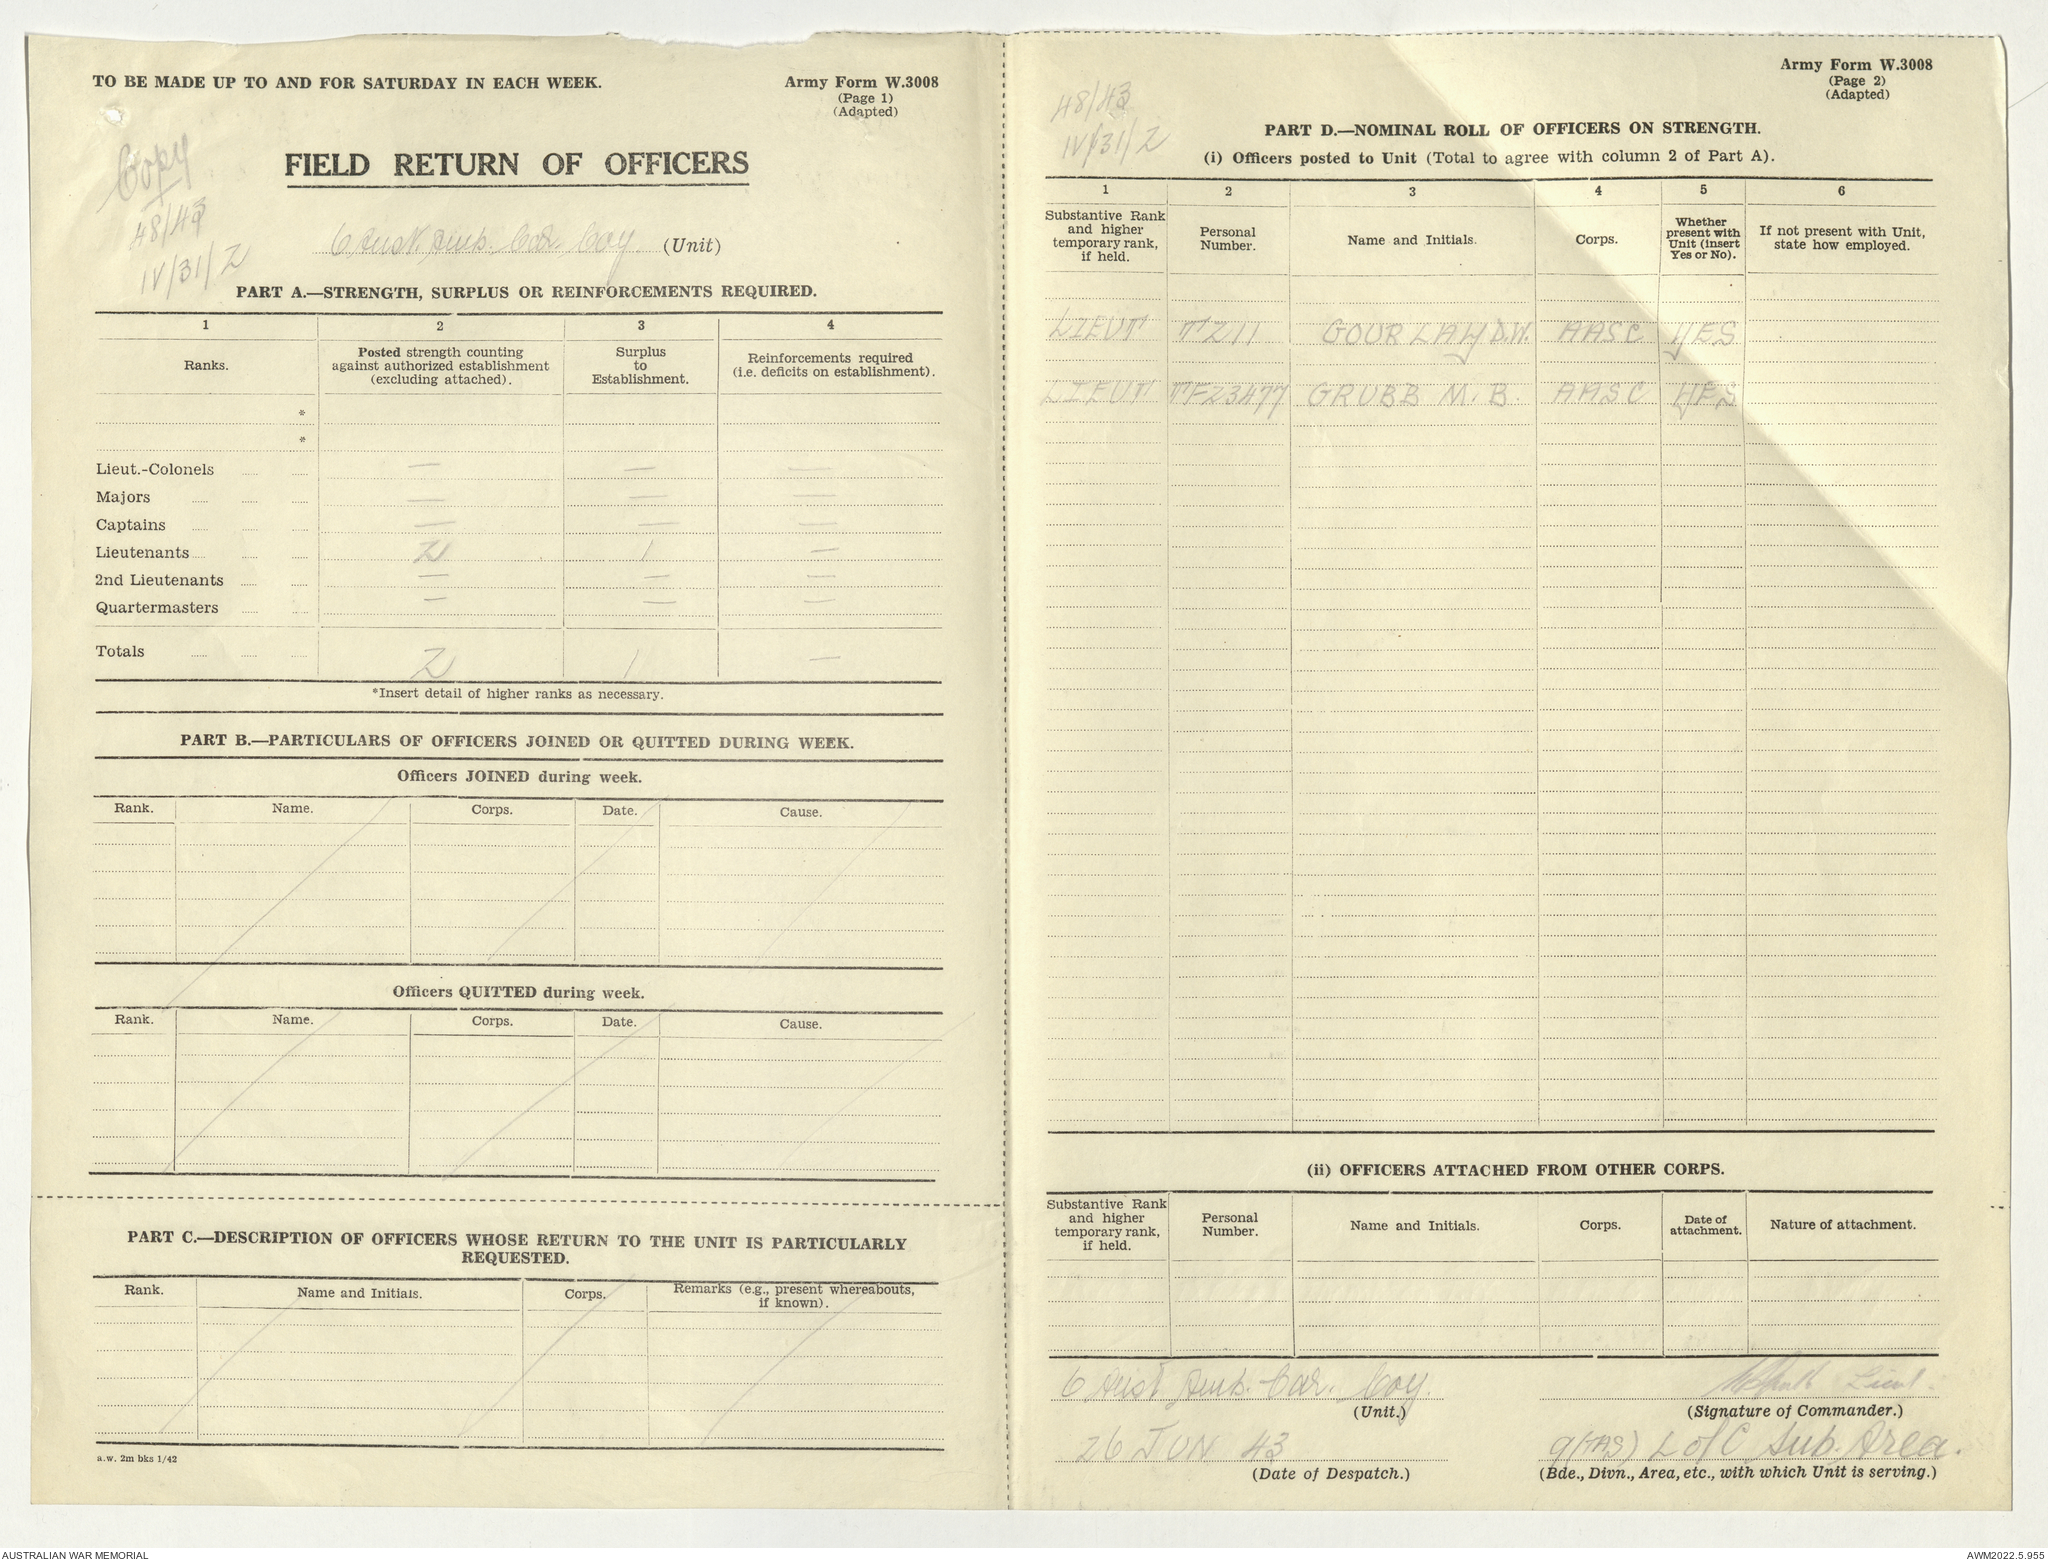 TO BE MADE UP TO AND FOR SATURDAY IN EACH WEEK.
Army Form W.3008
(Page 1)
(Adapted)
Copy
48/43
IV/31/2
FIELD RETURN OF OFFICERS
6 Aust Amb. Car Coy (Unit)
PART A.—STRENGTH, SURPLUS OR REINFORCEMENTS REQUIRED.
1 2 3 4
Ranks. Posted strength counting against authorized establishment (excluding attached). Surplus to Establishment. Reinforcements required (i.e. deficits on establishment).
*
*
Lieut.-Colonels ..... ..... — — —
Majors ..... ..... ..... — — —
Captains ..... ..... ..... — — —
Lieutenants ..... ..... ..... 2 1 —
2nd Lieutenants ..... ..... — — —
Quartermasters ..... ..... — — —
Totals ..... ..... ..... 2 1 —
*Insert detail of higher ranks as necessary.
PART B.—PARTICULARS OF OFFICERS JOINED OR QUITTED DURING WEEK.
Officers JOINED during week.
Rank. Name. Corps. Date. Cause.
Officers QUITTED during week.
Rank. Name. Corps. Date. Cause.
PART C.—DESCRIPTION OF OFFICERS WHOSE RETURN TO THE UNIT IS PARTICULARLY
REQUESTED.
Rank. Name and Initials. Corps. Remarks (e.g., present whereabouts, if known).
a.w. 2m bks 1/42
Army Form W.3008
(Page 2)
(Adapted)
48/43
IV/31/2
PART D.—NOMINAL ROLL OF OFFICERS ON STRENGTH.
(i) Officers posted to Unit (Total to agree with column 2 of Part A).
1 2 3 4 5 6
Substantive Rank and higher temporary rank, if held. Personal Number. Name and Initials. Corps. Whether present with Unit (insert Yes or No). If not present with Unit, state how employed.
LIEUT T211 GOURLAY D.W. AASC YES
LIEUT TF23477 GRUBB M. B. AASC YES
(ii) OFFICERS ATTACHED FROM OTHER CORPS.
Substantive Rank and higher temporary rank, if held. Personal Number. Name and Initials. Corps. Date of attachment. Nature of attachment.
6 Aust Amb. Car. Coy.
(Unit.)
Lieut.
(Signature of Commander.)
26 JUN 43
(Date of Despatch.)
9(TAS) L of C Sub. Area.
(Bde., Divn., Area, etc., with which Unit is serving.)
AUSTRALIAN WAR MEMORIAL
AWM2022.5.955